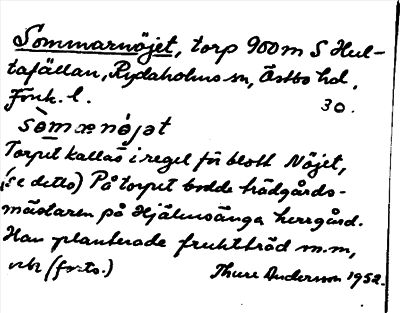 Sommarnöjet, torp 900 m S Hul-
tafällan, Rydaholms sn, Östbo hd,
Jönk. l.
30.
sòmænö́jət
Torpet kallas i regel för blott Nöjet,
(se detta) På torpet bodde trädgårds-
mästaren på Hjälmsänga herrgård.
Han planterade fruktträd m.m,
(forts.)
Thure Andersson 1952.